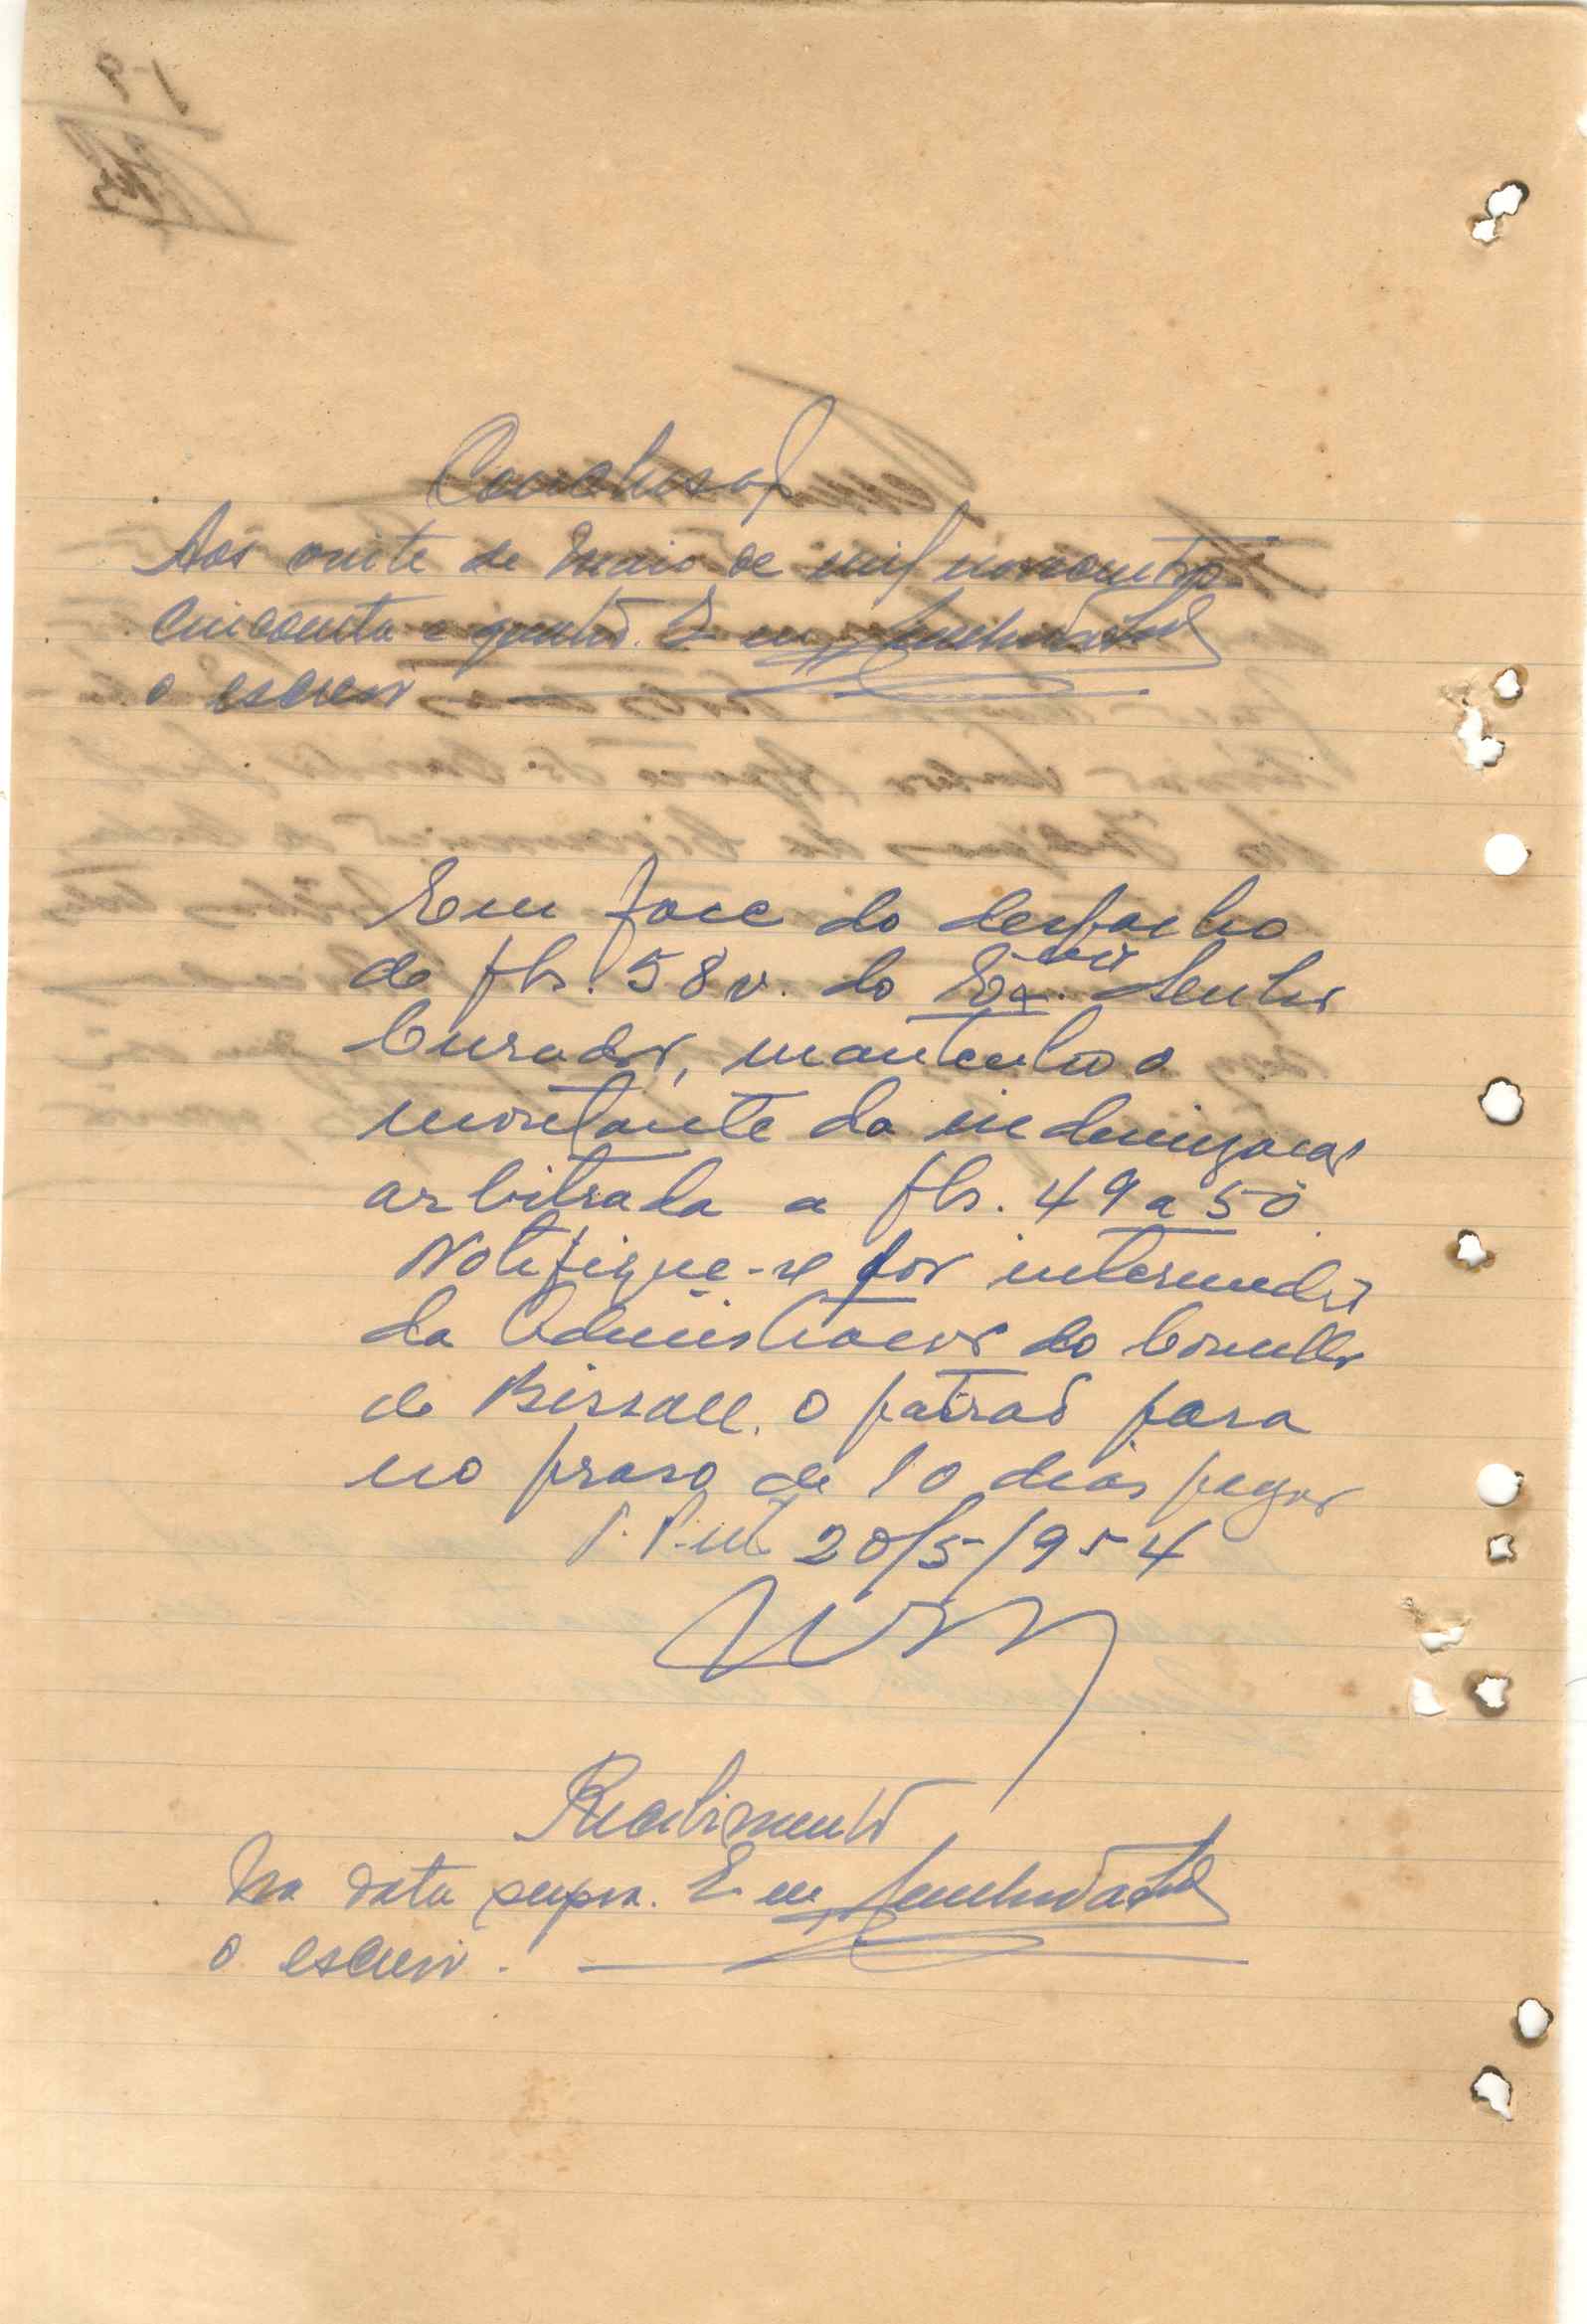 Conclusão
Aos vinte de Maio de mil novecentos
cincoenta e quatro. E eu
o escrevi
Em face do despacho
de fls. 58 v. do Exmo. Senhor
Curador, mantenho o
montante da indemnização
arbitrada a fls. 49 a 50
Notifique-se por intermedio
da Administração do Concelho
de Bissau, o patrão para
no praso de 10 dias pagar
20/5/954
Recebimento
Na data supra. E eu
o escrevi.